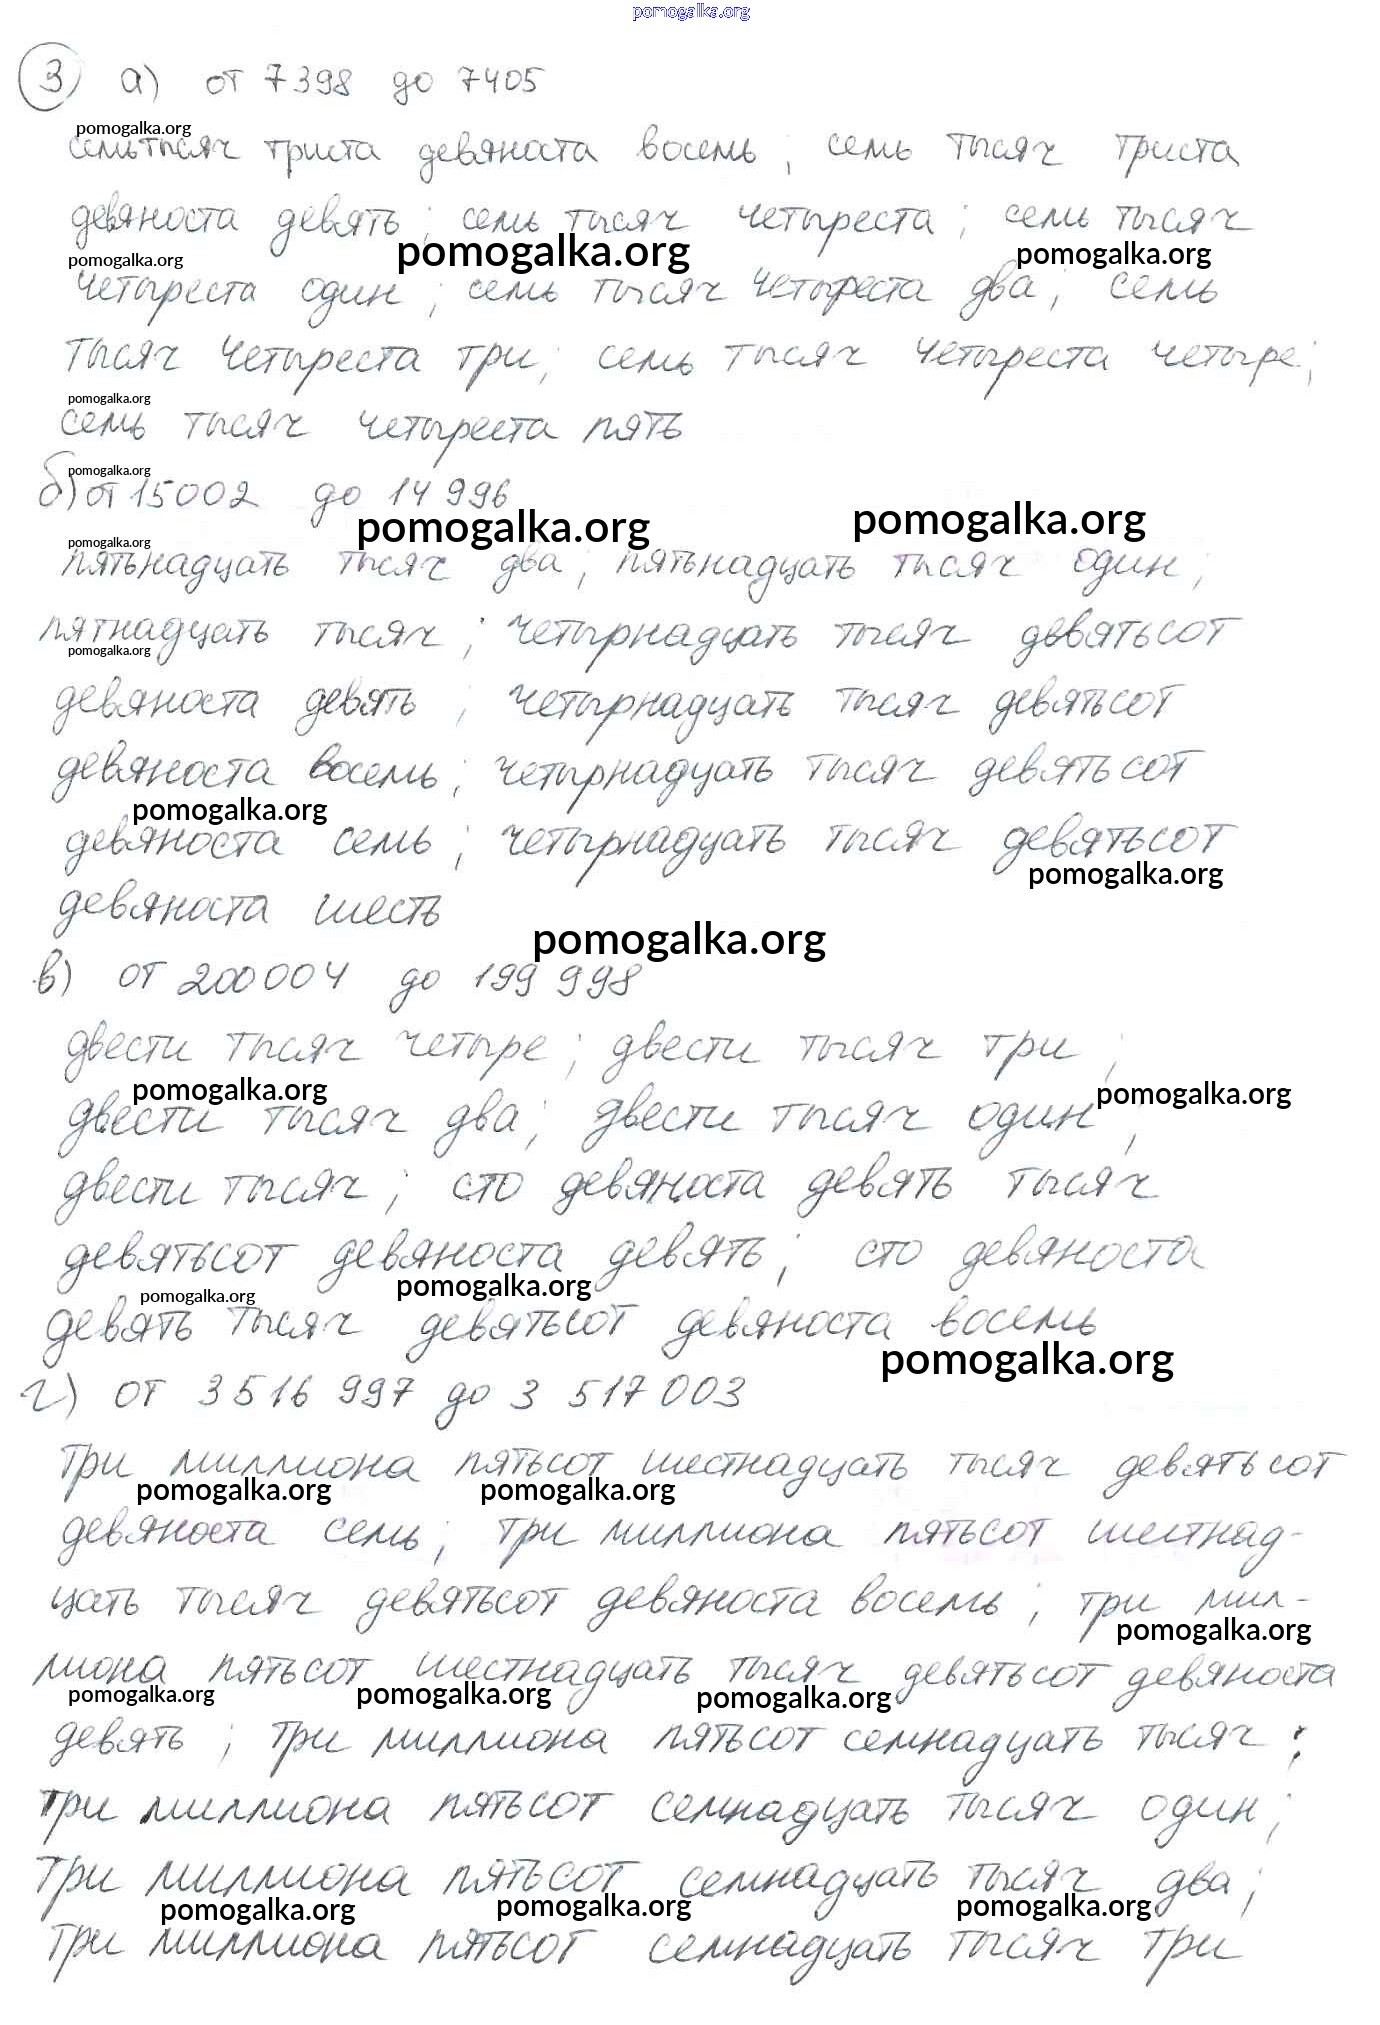 pomogalka.org
3 а) от 7398 до 7405
pomogalka.org
семь тысяч триста девяноста восемь; семь тысяч триста
девяноста девять; семь тысяч четыреста; семь тысяч
pomogalka.org pomogalka.org pomogalka.org
четыреста один; семь тысяч четыреста два; семь
тысяч четыреста три; семь тысяч четыреста четыре;
pomogalka.org
семь тысяч четыреста пять
pomogalka.org
б) от 15002 до 14 996
pomogalka.org pomogalka.org
pomogalka.org
пятьнадцать тысяч два; пятьнадцать тысяч один;
пятнадцать тысяч; четырнадцать тысяч девятьсот
pomogalka.org
девяноста девять; четырнадцать тысяч девятьсот
девяноста восемь; четырнадцать тысяч девятьсот
pomogalka.org
девяноста семь; четырнадцать тысяч девятьсот
pomogalka.org
девяноста шесть
pomogalka.org
в) от 200 004 до 199 998
двести тысяч четыре; двести тысяч три;
pomogalka.org pomogalka.org
двести тысяч два; двести тысяч один;
двести тысяч; сто девяноста девять тысяч
девятьсот девяноста девять; сто девяноста
pomogalka.org pomogalka.org
девять тысяч девятьсот девяноста восемь
pomogalka.org
г) от 3 516 997 до 3 517 003
три миллиона пятьсот шестнадцать тысяч девятьсот
pomogalka.org pomogalka.org
девяноста семь; три миллиона пятьсот шестнад-
цать тысяч девятьсот девяноста восемь; три мил-
pomogalka.org
лиона пятьсот шестнадцать тысяч девятьсот девяноста
pomogalka.org pomogalka.org pomogalka.org
девять; три миллиона пятьсот семнадцать тысяч;
три миллиона пятьсот семнадцать тысяч один;
три миллиона пятьсот семнадцать тысяч два;
pomogalka.org pomogalka.org pomogalka.org
три миллиона пятьсот семнадцать тысяч три